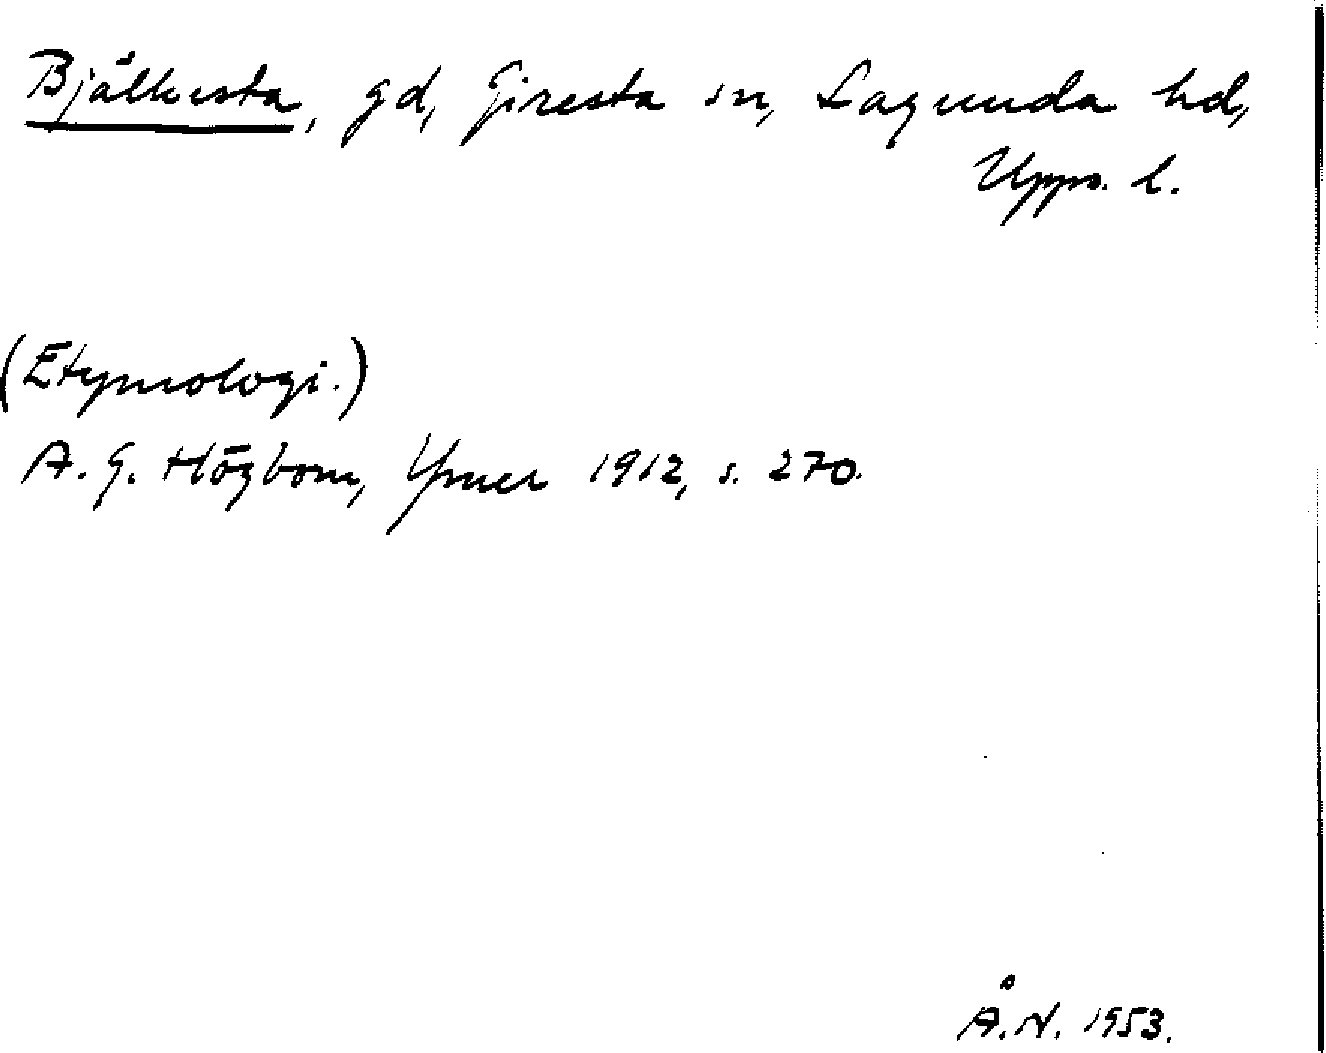 Bjälkesta, gd, Giresta sn, Lagunda hd,
Upps. l.
(Etymologi.)
A. G. Högbom, Ymer 1912, s. 270.
Å. N. 1953.